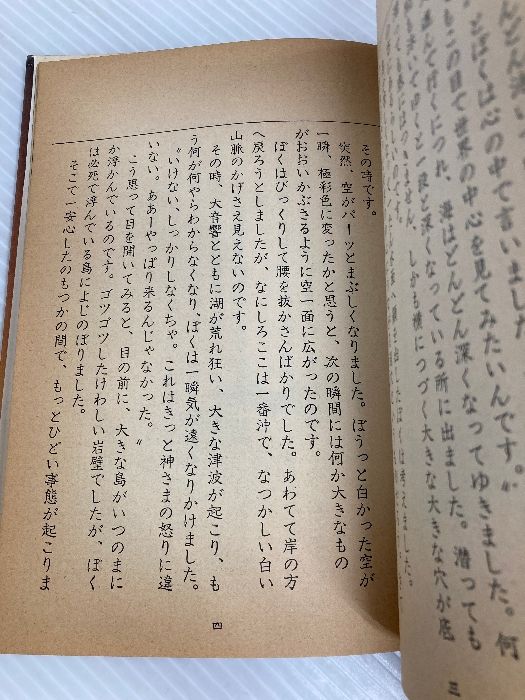 どんどん
とぼくは心の中で言いました。何
もこの目で世界の中心を見てみたいんです。
進んで行くにつれ、海はどんどん深くなってゆきました。潜っても
と深くなっている所に出ました。
しかも横につづく大きな大きな穴が底
ぼくは考えました。
三
その時です。
突然、空がパーッとまぶしくなりました。ぼうっと白かった空が
一瞬、極彩色に変ったかと思うと、次の瞬間には何か大きなもの
がおおいかぶさるように空一面に広がったのです。
ぼくはびっくりして腰を抜かさんばかりでした。あわてて岸の方
へ戻ろうとしましたが、なにしろここは一番沖で、なつかしい白い
山脈のかげさえ見えないのです。
その時、大音響とともに湖が荒れ狂い、大きな津波が起こり、も
う何が何やらわからなくなり、ぼくは一瞬気が遠くなりかけました。
〝いけない、しっかりしなくちゃ。これはきっと神さまの怒りに違
いない。ああ！やっぱり来るんじゃなかった。〟
こう思って目を開いてみると、目の前に、大きな島がいつのまに
か浮かんでいるのです。ゴツゴツしたけわしい岩壁でしたが、ぼく
は必死で浮んでいる島によじのぼりました。
そこで一安心したのもつかの間で、もっとひどい事態が起こりま
四